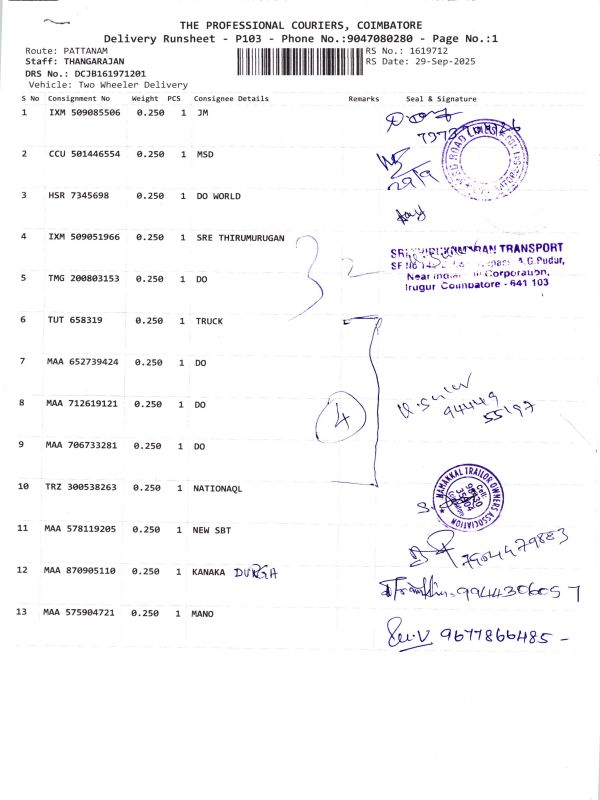 THE PROFESSIONAL COURIERS, COIMBATORE
Delivery Runsheet - P103 - Phone No.:9047080280 - Page No.:1
Route: PATTANAM
RS No.: 1619712
Staff: THANGARAJAN
RS Date: 29-Sep-2025
DRS No.: DCJB161971201
Vehicle: Two Wheeler Delivery
S No Consignment No Weight PCS Consignee Details Remarks Seal & Signature
1 IXM 509085506 0.250 1 JM
2 CCU 501446554 0.250 1 MSD
29/9
3 HSR 7345698 0.250 1 DO WORLD
4 IXM 509051966 0.250 1 SRE THIRUMURUGAN
3 2
TRANSPORT
A.G.Pudur,
5 TMG 200803153 0.250 1 DO
Near Indian Corporation,
Irugur Coimbatore - 641 103
6 TUT 658319 0.250 1 TRUCK
7 MAA 652739424 0.250 1 DO
8 MAA 712619121 0.250 1 DO
4
94449
55197
9 MAA 706733281 0.250 1 DO
10 TRZ 300538263 0.250 1 NATIONAQL
NAMAKKAL TRAILOR OWNERS ASSOCIATION
Cell:
11 MAA 578119205 0.250 1 NEW SBT
7904479883
12 MAA 870905110 0.250 1 KANAKA DURGA
Franklin-9944306057
13 MAA 575904721 0.250 1 MANO
9677866485 -